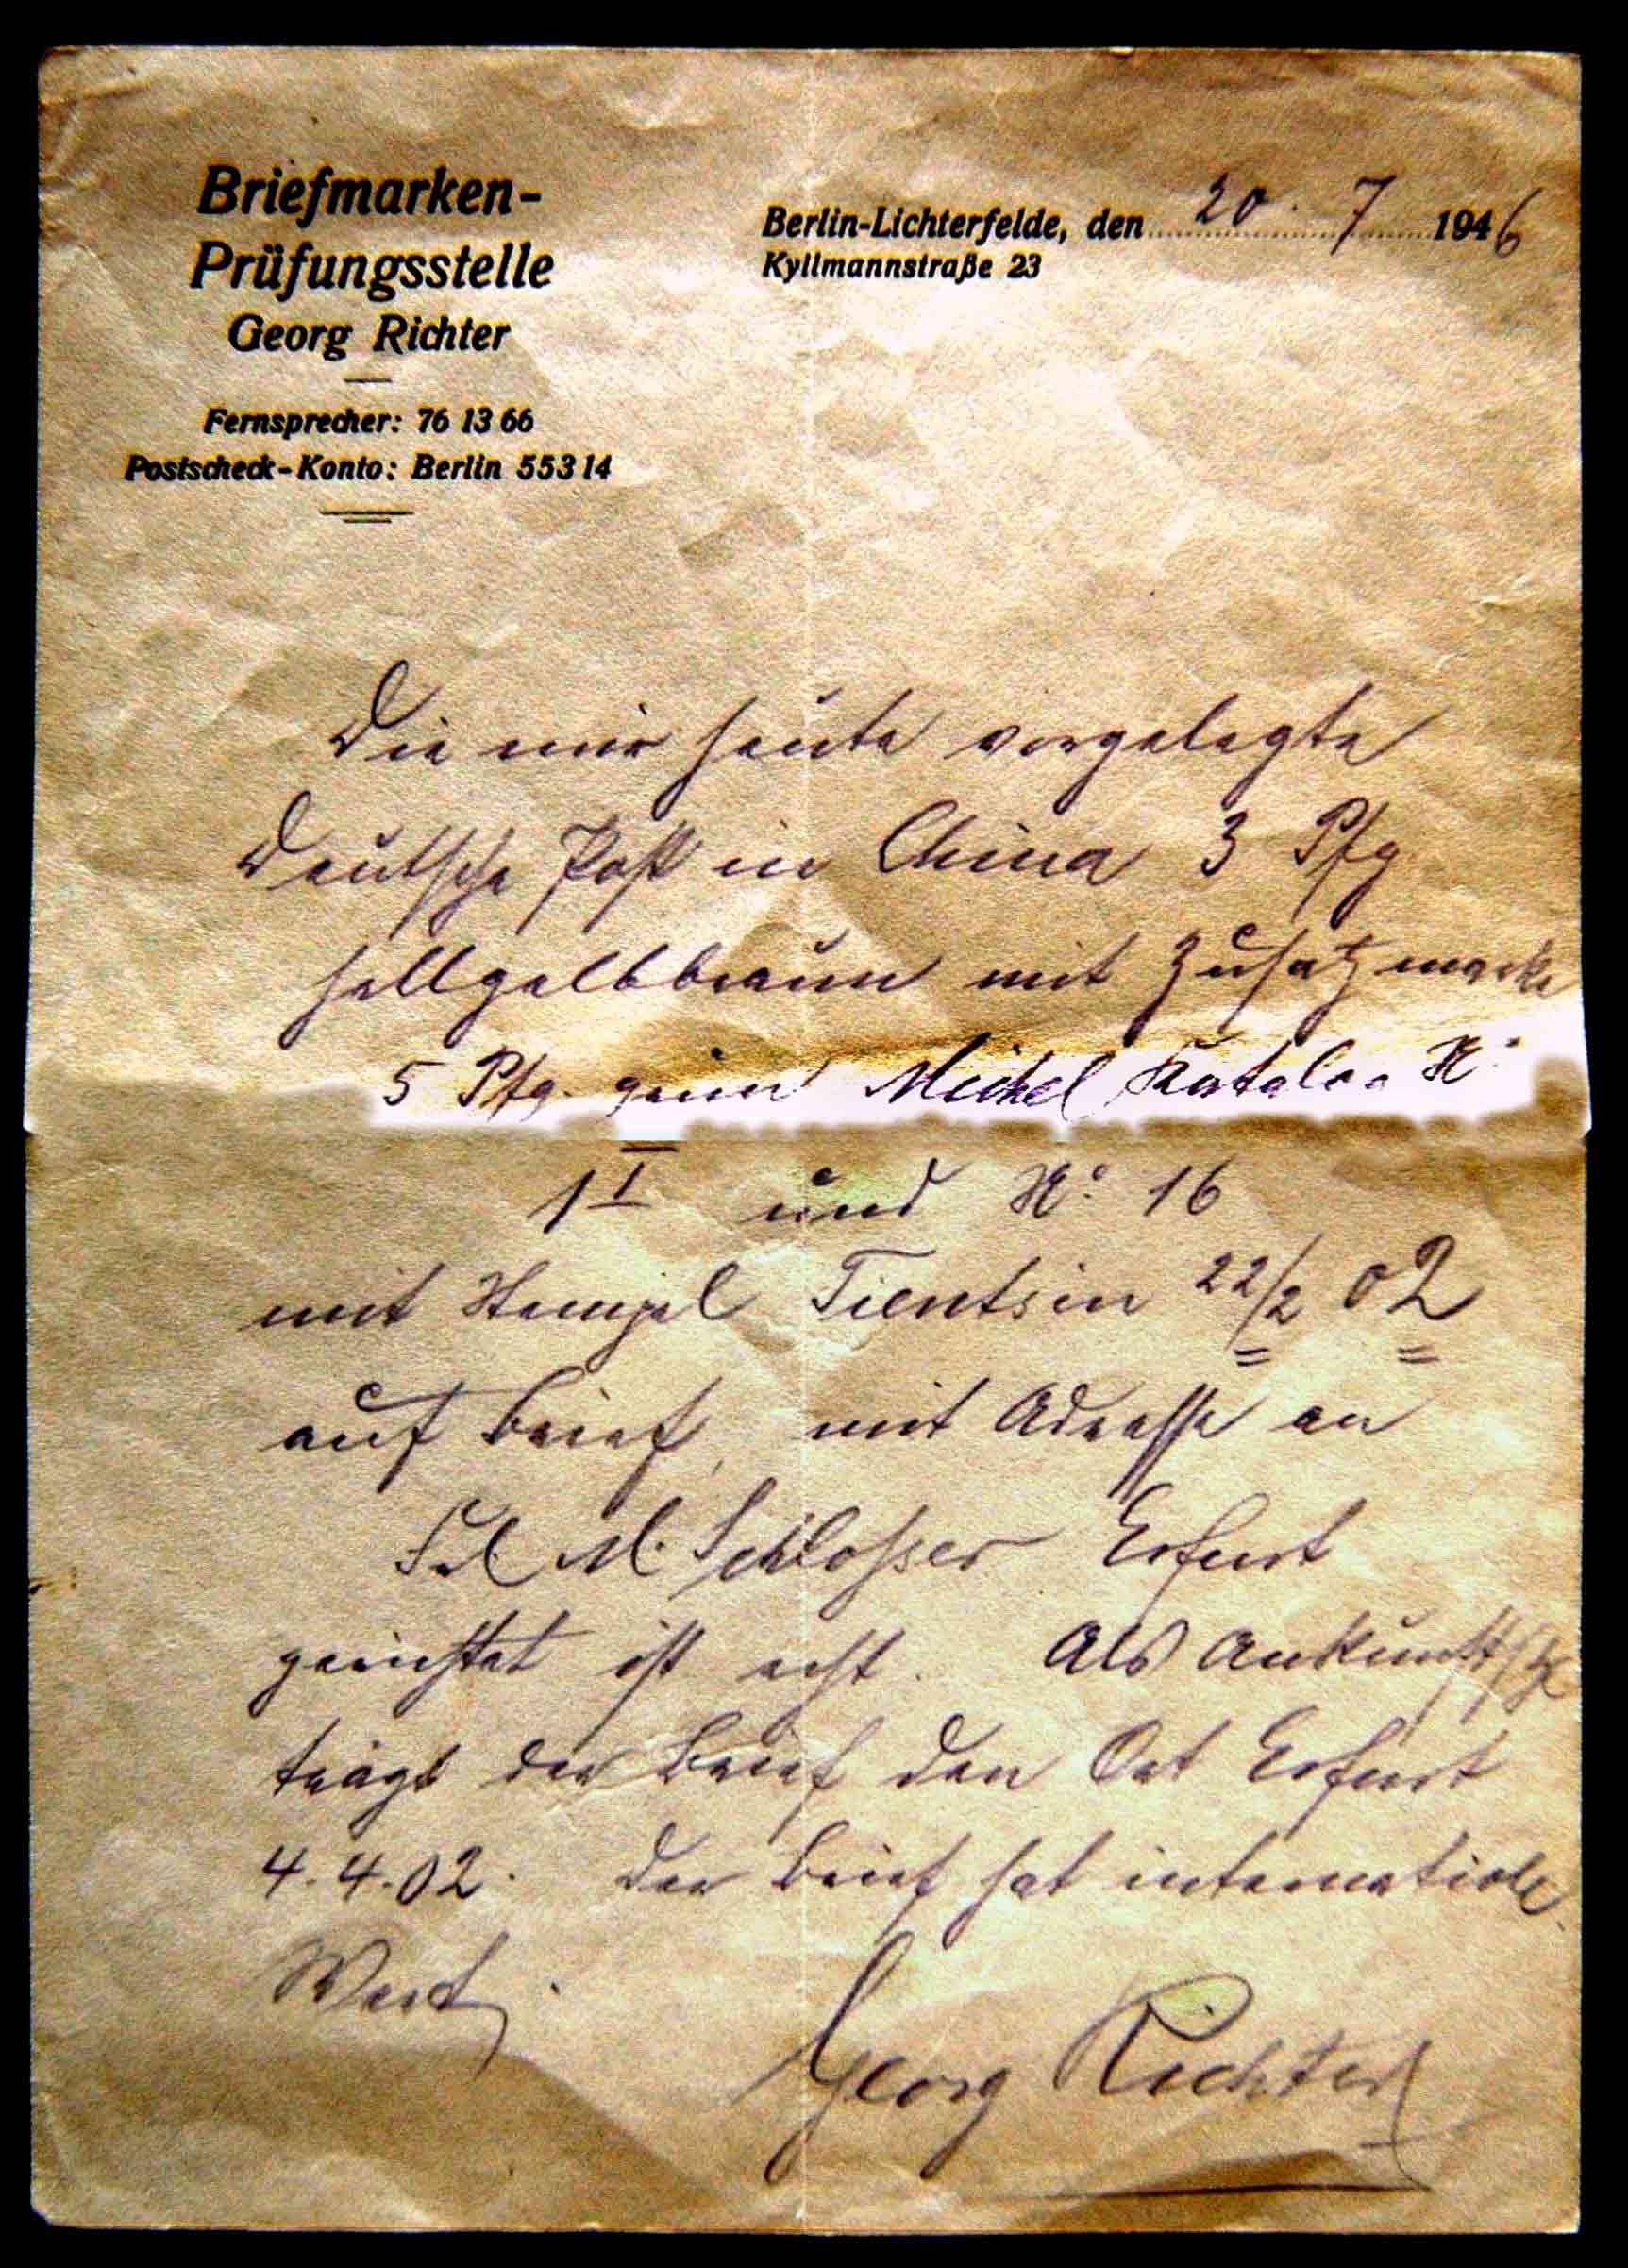 Briefmarken-
Prüfungsstelle
Georg Richter
Fernsprecher: 76 13 66
Postscheck-Konto: Berlin 55314
Berlin-Lichterfelde, den 20. 7 1946
Kyllmannstraße 23
Die mir heute vorgelegte
Deutsche Post in China 3 Pfg
hellgelbbraun mit Zusatzmarke
5 Pfg. grün Michel Katalog N°
1 I und N° 16
mit Stempel Tientsin 22/2 02
auf Brief, mit Adresse an
Frl. M. Schloßer Erfurt
gerichtet ist echt. Als Ankunft
trägt der Brief den Ort Erfurt
4.4.02. Der Brief hat internationale
Wert.
Georg Richter